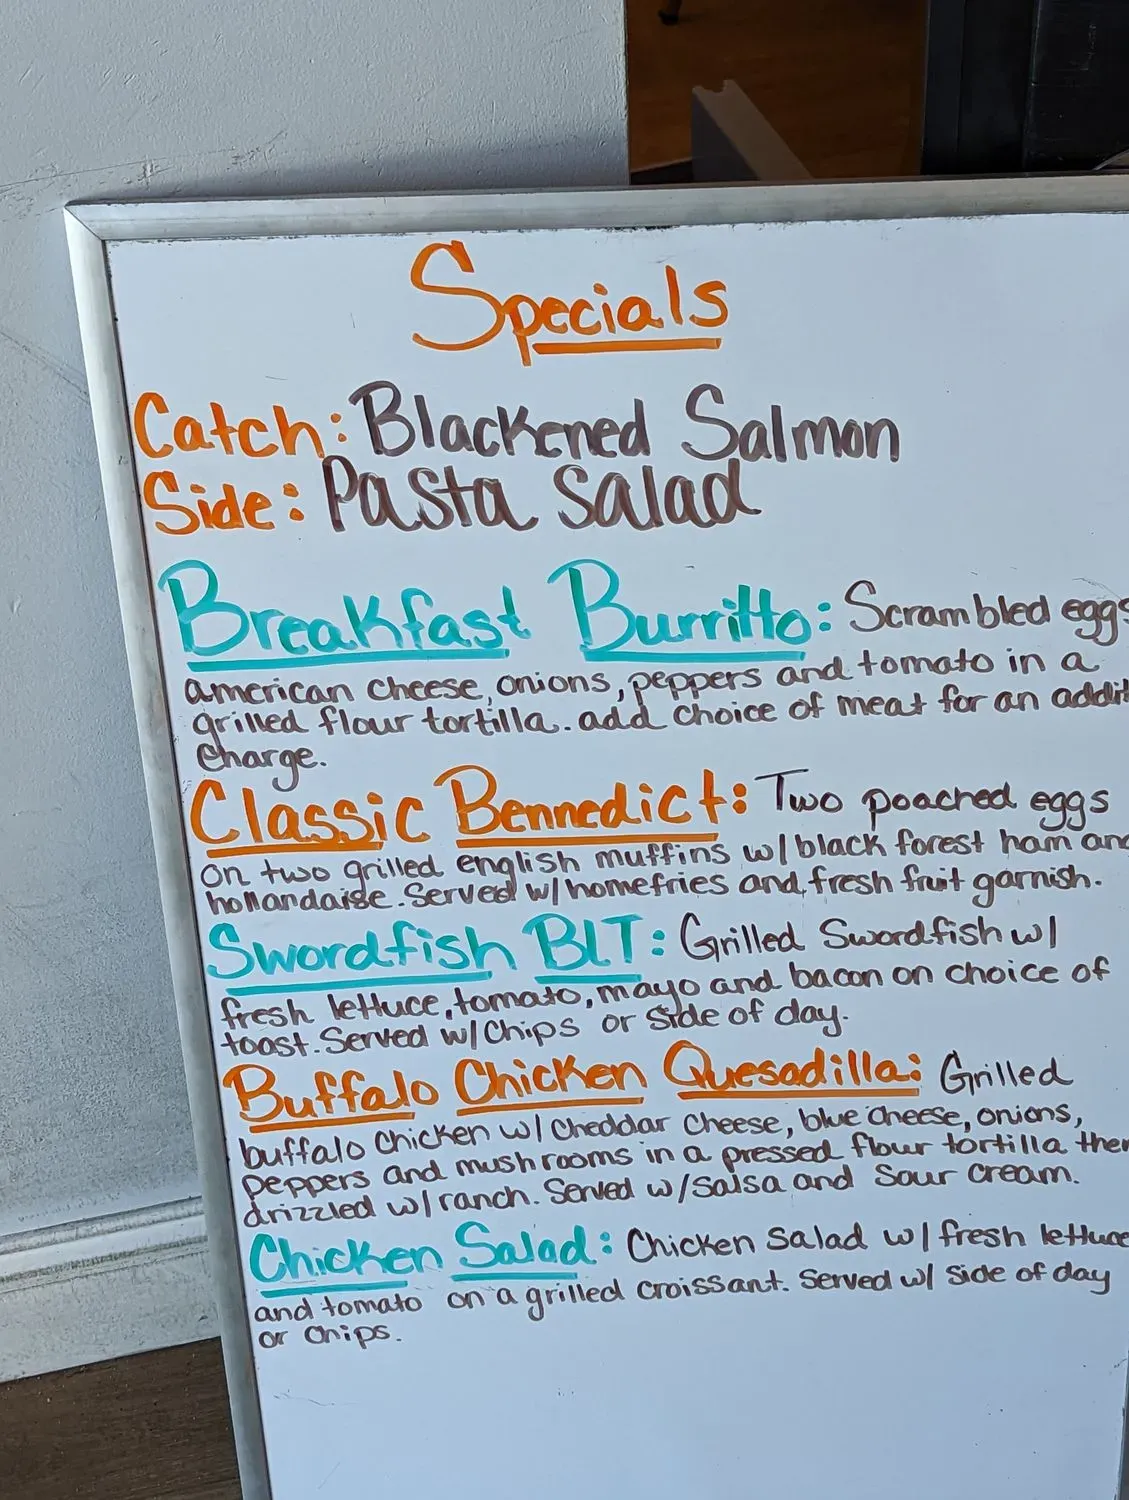 Specials
Catch: Blackened Salmon
Side: Pasta Salad
Breakfast Burritto: Scrambled eggs
american cheese, onions, peppers and tomato in a
grilled flour tortilla. add choice of meat for an addit
charge.
Classic Bennedict: Two poached eggs
on two grilled english muffins w/ black forest ham and
hollandaise. Served w/ homefries and fresh fruit garnish.
Swordfish BLT: Grilled Swordfish w/
fresh lettuce, tomato, mayo and bacon on choice of
toast. Served w/ Chips or side of day.
Buffalo Chicken Quesadilla: Grilled
buffalo chicken w/ cheddar cheese, blue cheese, onions,
peppers and mushrooms in a pressed flour tortilla then
drizzled w/ ranch. Served w/ salsa and sour cream.
Chicken Salad: Chicken Salad w/ fresh lettuce
and tomato on a grilled croissant. Served w/ side of day
or chips.